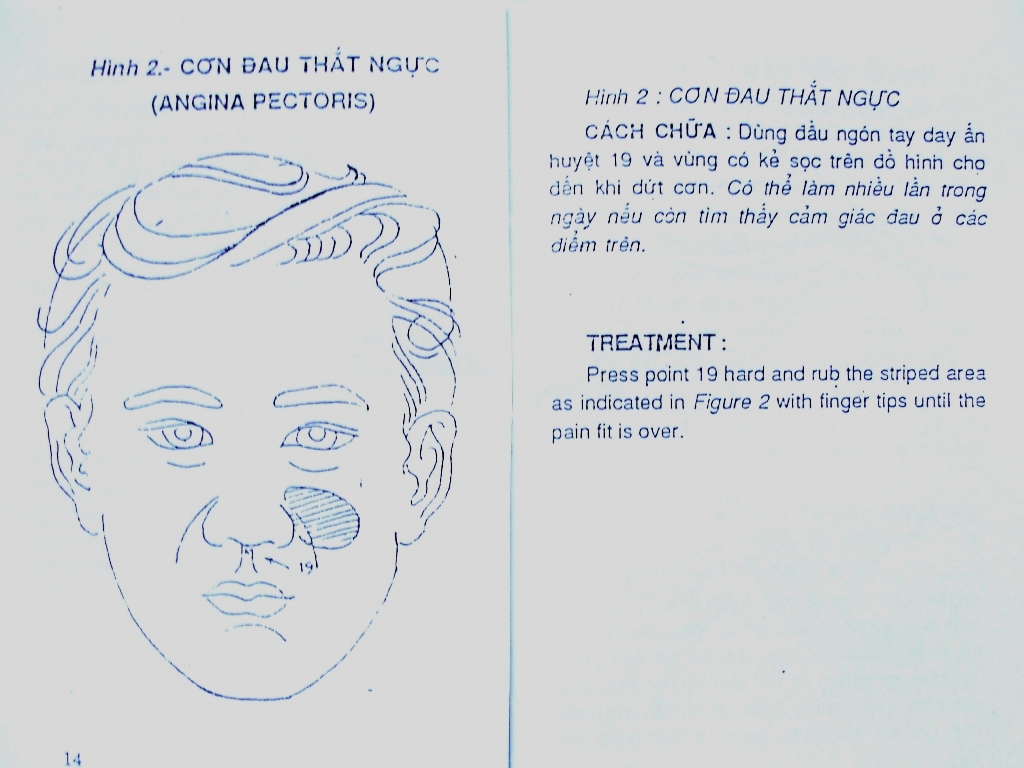 Hình 2.- CƠN ĐAU THẮT NGỰC
(ANGINA PECTORIS)
19
14
Hình 2 : CƠN ĐAU THẮT NGỰC
CÁCH CHỮA : Dùng đầu ngón tay day ấn
huyệt 19 và vùng có kẻ sọc trên đồ hình cho
đến khi dứt cơn. Có thể làm nhiều lần trong
ngày nếu còn tìm thấy cảm giác đau ở các
điểm trên.
TREATMENT :
Press point 19 hard and rub the striped area
as indicated in Figure 2 with finger tips until the
pain fit is over.